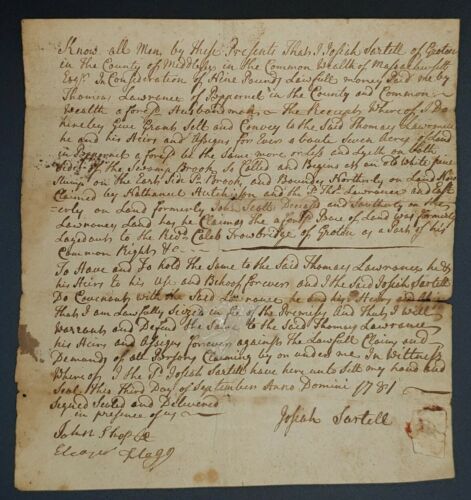 Know all Men by these Presents That I Josiah Sartell of Groton
in the County of Middlesex in the Common Wealth of Massachusetts
Esqr In Consideration of Nine Pounds Lawfull money Paid me by
Thomas Lawrance of Pepperrel in the County and Common
Wealth aforesd Husbandman the Receipt Whereof I Do
hereby Give Grant Sell and Convey to the Said Thomas Lawrance
he and his Heirs and Assigns for Ever a boute Acres of Land
in Pepperrel aforesd be the same more or less and Lyeth on both
Sides of the Brook So Called and begins at an old White pine
Stump on the East Side Sd Brook, and Bounds Northerly on Land Now
Claimed by Nathaniel Hutchinson and the Sd Thos Lawrance and East
erly on Land formerly John Scott Deceasd and Southerly on the
Lawrances Land he Claims the aforesd Land was formerly
Layed out to the Revd Caleb Trowbridge of Groton as a Part of his
Common Rights &c
To Have and To hold the Same to the Said Thomas Lawrance he &
his Heirs to his Use and Behoof forever and I the Said Josiah Sartell
Do Covenant with the Said Lawrance he and his Heirs and
that I am Lawfully Seized in fee of the Premises and that I will
Warrant and Defend the Same to the Said Thomas Lawrance
his Heirs and Assigns forever against the Lawfull Claims and
Demands of all Persons Claiming by or under me In Wittness
Whereof I the Sd Josiah Sartell have here unto Sett my hand and
Seal this Third Day of September Anno Domini 1781
Signed Sealed and Delivered
in presence of us
Josiah Sartell
John
Flagg